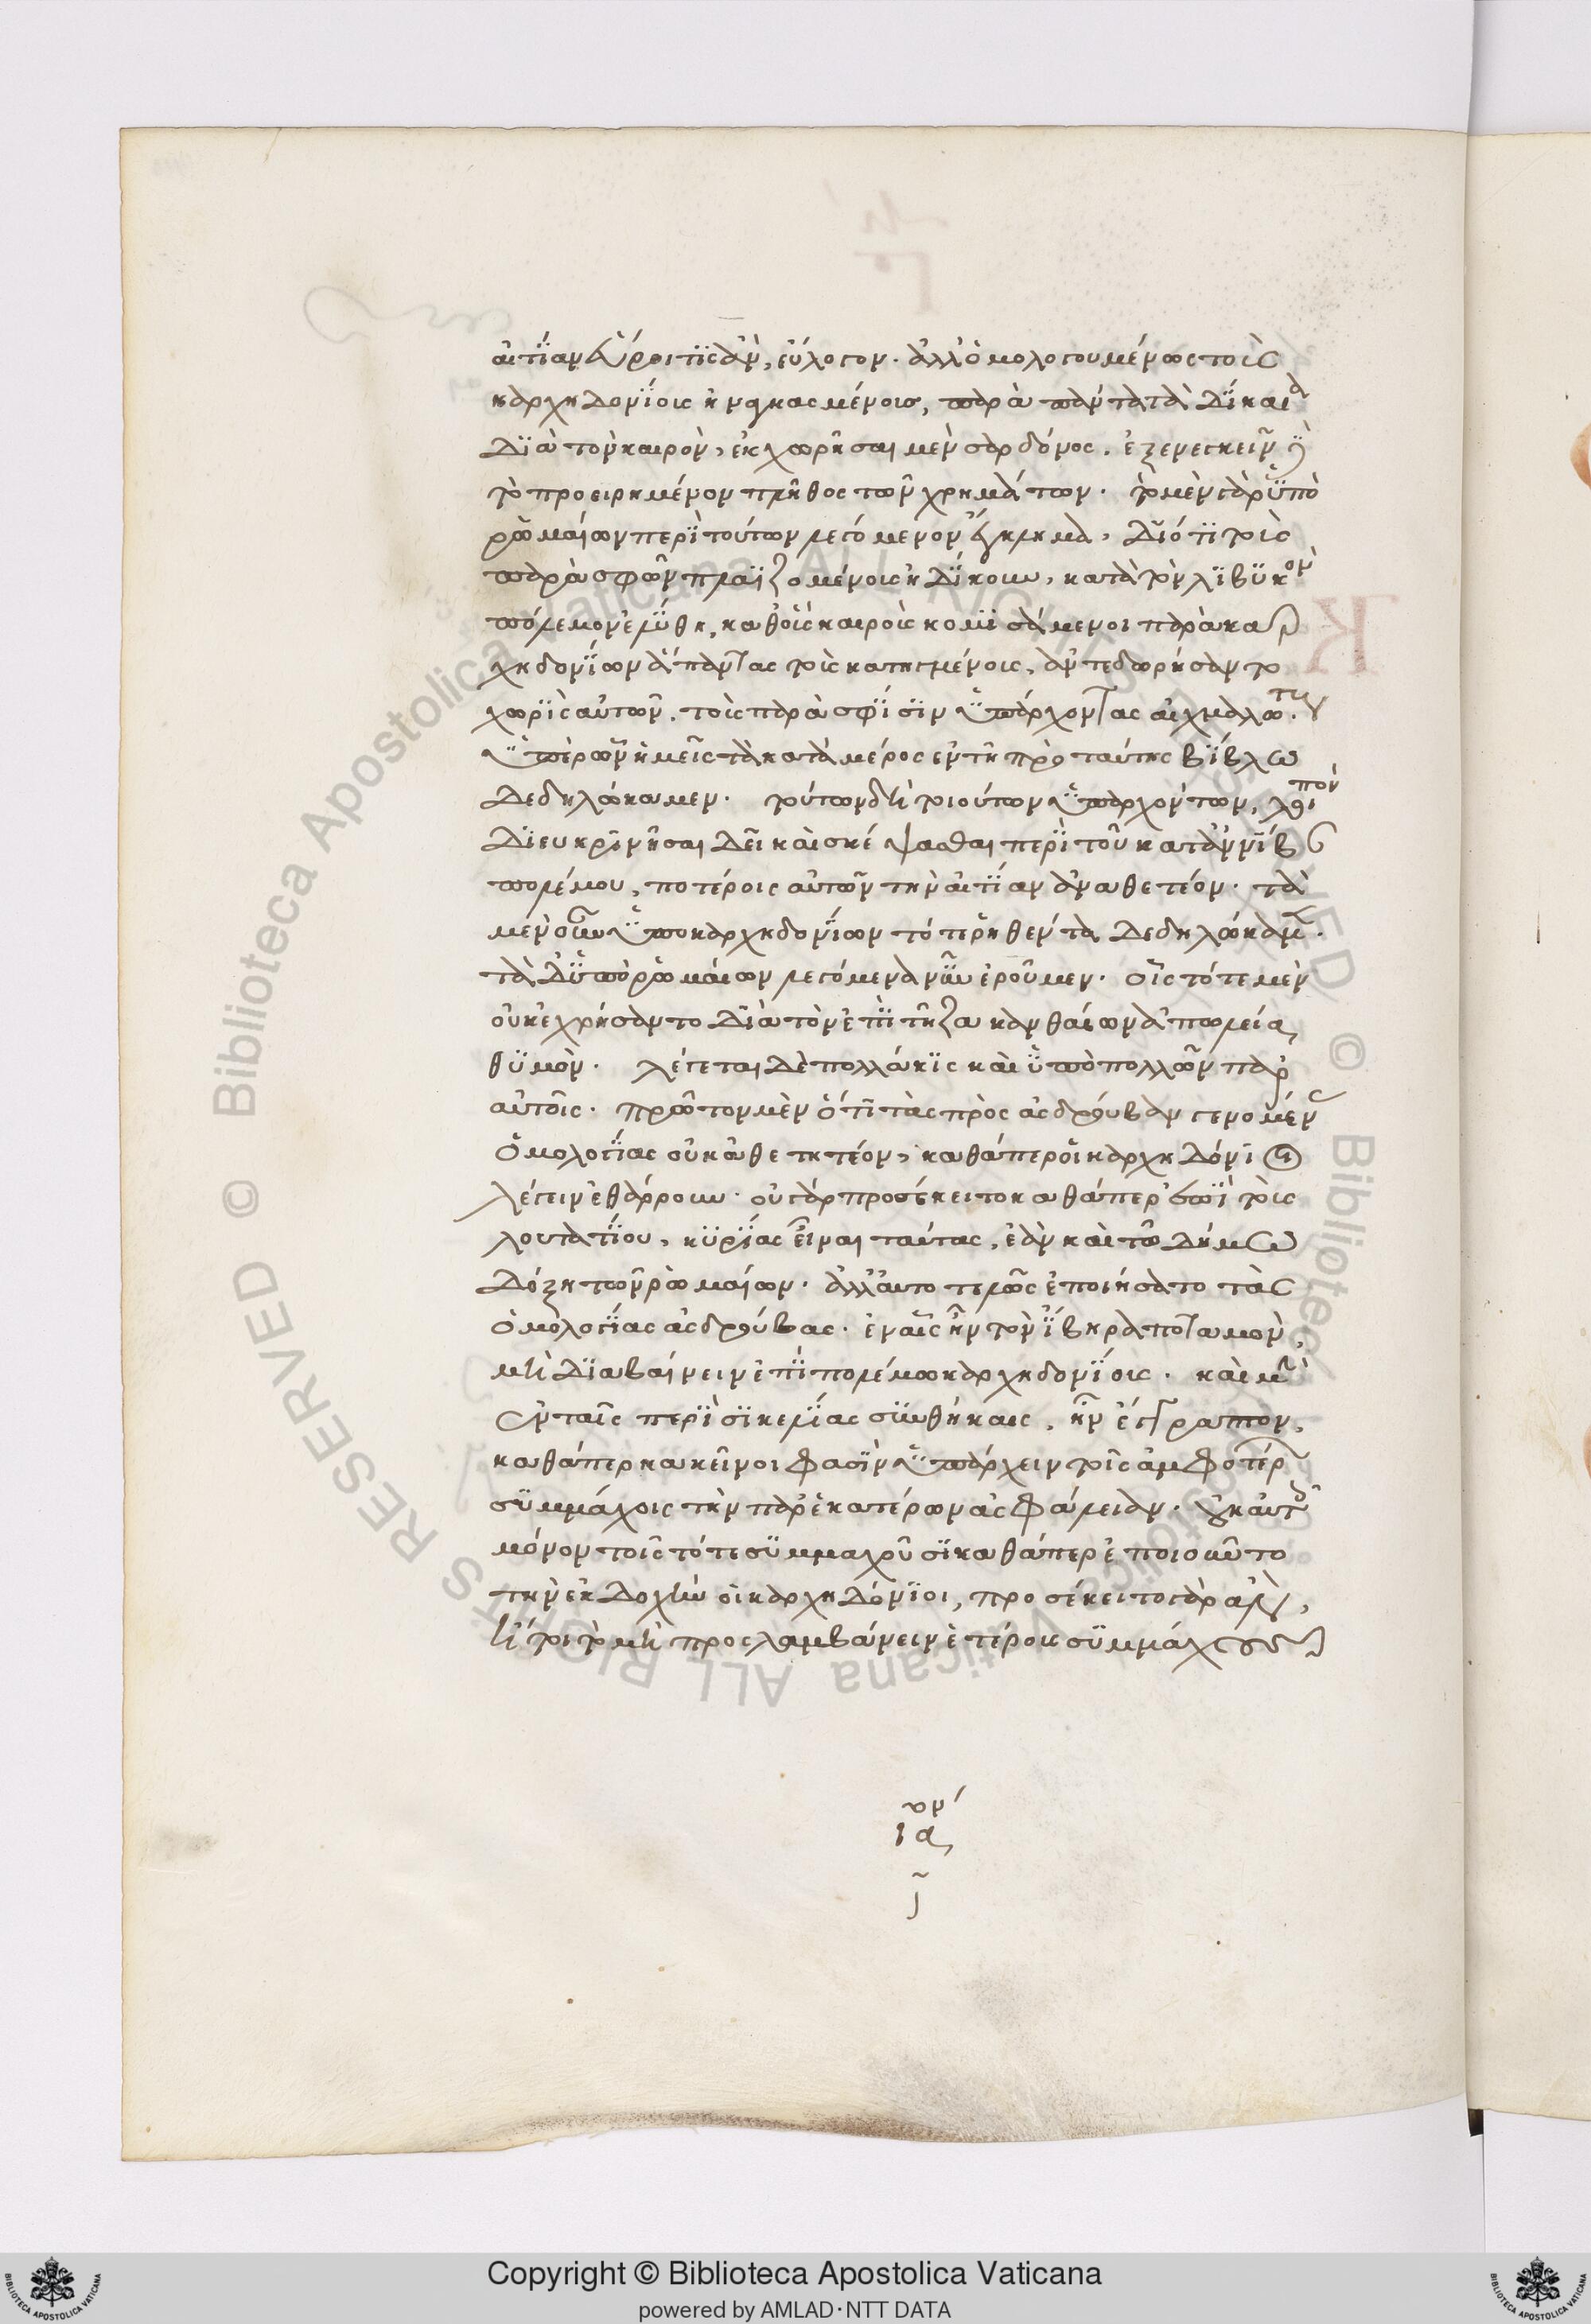 αἰτίαν εὕροι τίς ἂν, εὔλογον. ἀλλ' ὁμολογουμένως τοὺς
καρχηδονίοις ἠναγκασμένοις, παρὰ πάντα τὰ δίκαια
διὰ τὸν καιρὸν, ἐκχωρῆσαι μὲν σαρδόνος. ἐξενεγκεῖν δὲ
τὸ προειρημένον πλῆθος τῶν χρημάτων. τὸ μὲν γὰρ ὑπὸ
ῥωμαίων περὶ τούτων λεγόμενον ἔγκλημα, διότι τοῖς
παρὰ σφῶν πλωϊζομένοις ἠδίκουν, κατὰ τὸν λιβυκὸν
πόλεμον ἐλύθη, καθ' οἷς καιροῖς κομισάμενοι παρὰ καρ
χηδονίων ἅπαντας τοὺς κατηγμένοις, ἀντεδωρήσαντο
χωρὶς αὐτῶν. τοὺς παρὰ σφίσιν ὑπάρχοντας αἰχμαλώτους.
ὑπὲρ ὧν ἡμεῖς τὰ κατὰ μέρος ἐν τῇ πρὸ ταύτης βίβλω
δεδηλώκαμεν. τούτων δὴ τοιούτων ὑπαρχόντων, λοιπὸν
διευκρινῆσαι δεῖ καὶ σκέψασθαι περὶ τοῦ κατ' ἀννίβου
πολέμου, ποτέροις αὐτῶν τὴν αἰτίαν ἀναθετέον. τὰ
μὲν οὖν ὑπὸ καρχηδονίων τότε ῥηθέντα δεδηλώκαμεν.
τὰ δ' ὑπὸ ῥωμαίων λεγόμενα νῦν ἐροῦμεν. οἷς τότε μὲν
οὐκ ἐχρήσαντο διὰ τὸν ἐπὶ τῇ ζακανθαίων ἀπωλεία
θυμὸν. λέγεται δὲ πολλάκις καὶ ὑπὸ πολλῶν παρ'
αὐτοῖς. πρῶτον μὲν ὅτι τὰς πρὸς ἀσδρούβαν γενομένας
ὁμολογίας οὐκ ἀθετητέον, καθάπερ οἱ καρχηδόνιοι
λέγειν ἐθάρρουν. οὐ γὰρ προσέκειτο καθάπερ ἐπὶ τοῖς
λουτατίου, κυρίας εἶναι ταύτας, ἐὰν καὶ τῶ δήμω
δόξη τῶν ῥωμαίων. ἀλλ' αὐτοτελῶς ἐποιήσατο τὰς
ὁμολογίας ἀσδρούβας. ἐν αἷς ἦν τὸν ἴβηρα ποταμὸν,
μὴ διαβαίνειν ἐπὶ πολέμω καρχηδονίοις. καὶ μὴν
ἐν ταῖς περὶ σικελίας συνθήκαις, ἦν ἔγγραπτον,
καθάπερ κἀκεῖνοι φασὶν ὑπάρχειν τοῖς ἀμφοτέρων
συμμάχοις τὴν παρ' ἑκατέρων ἀσφάλειαν. οὐκ αὐτοῖς
μόνον τοῖς τότε συμμαχοῦσι καθάπερ ἐποιοῦντο
τὴν ἐκδοχὴν οἱ καρχηδόνιοι, προσέκειτο γὰρ ἂν,
ἤτοι τὸ μὴ προσλαμβάνειν ἑτέροις συμμάχους